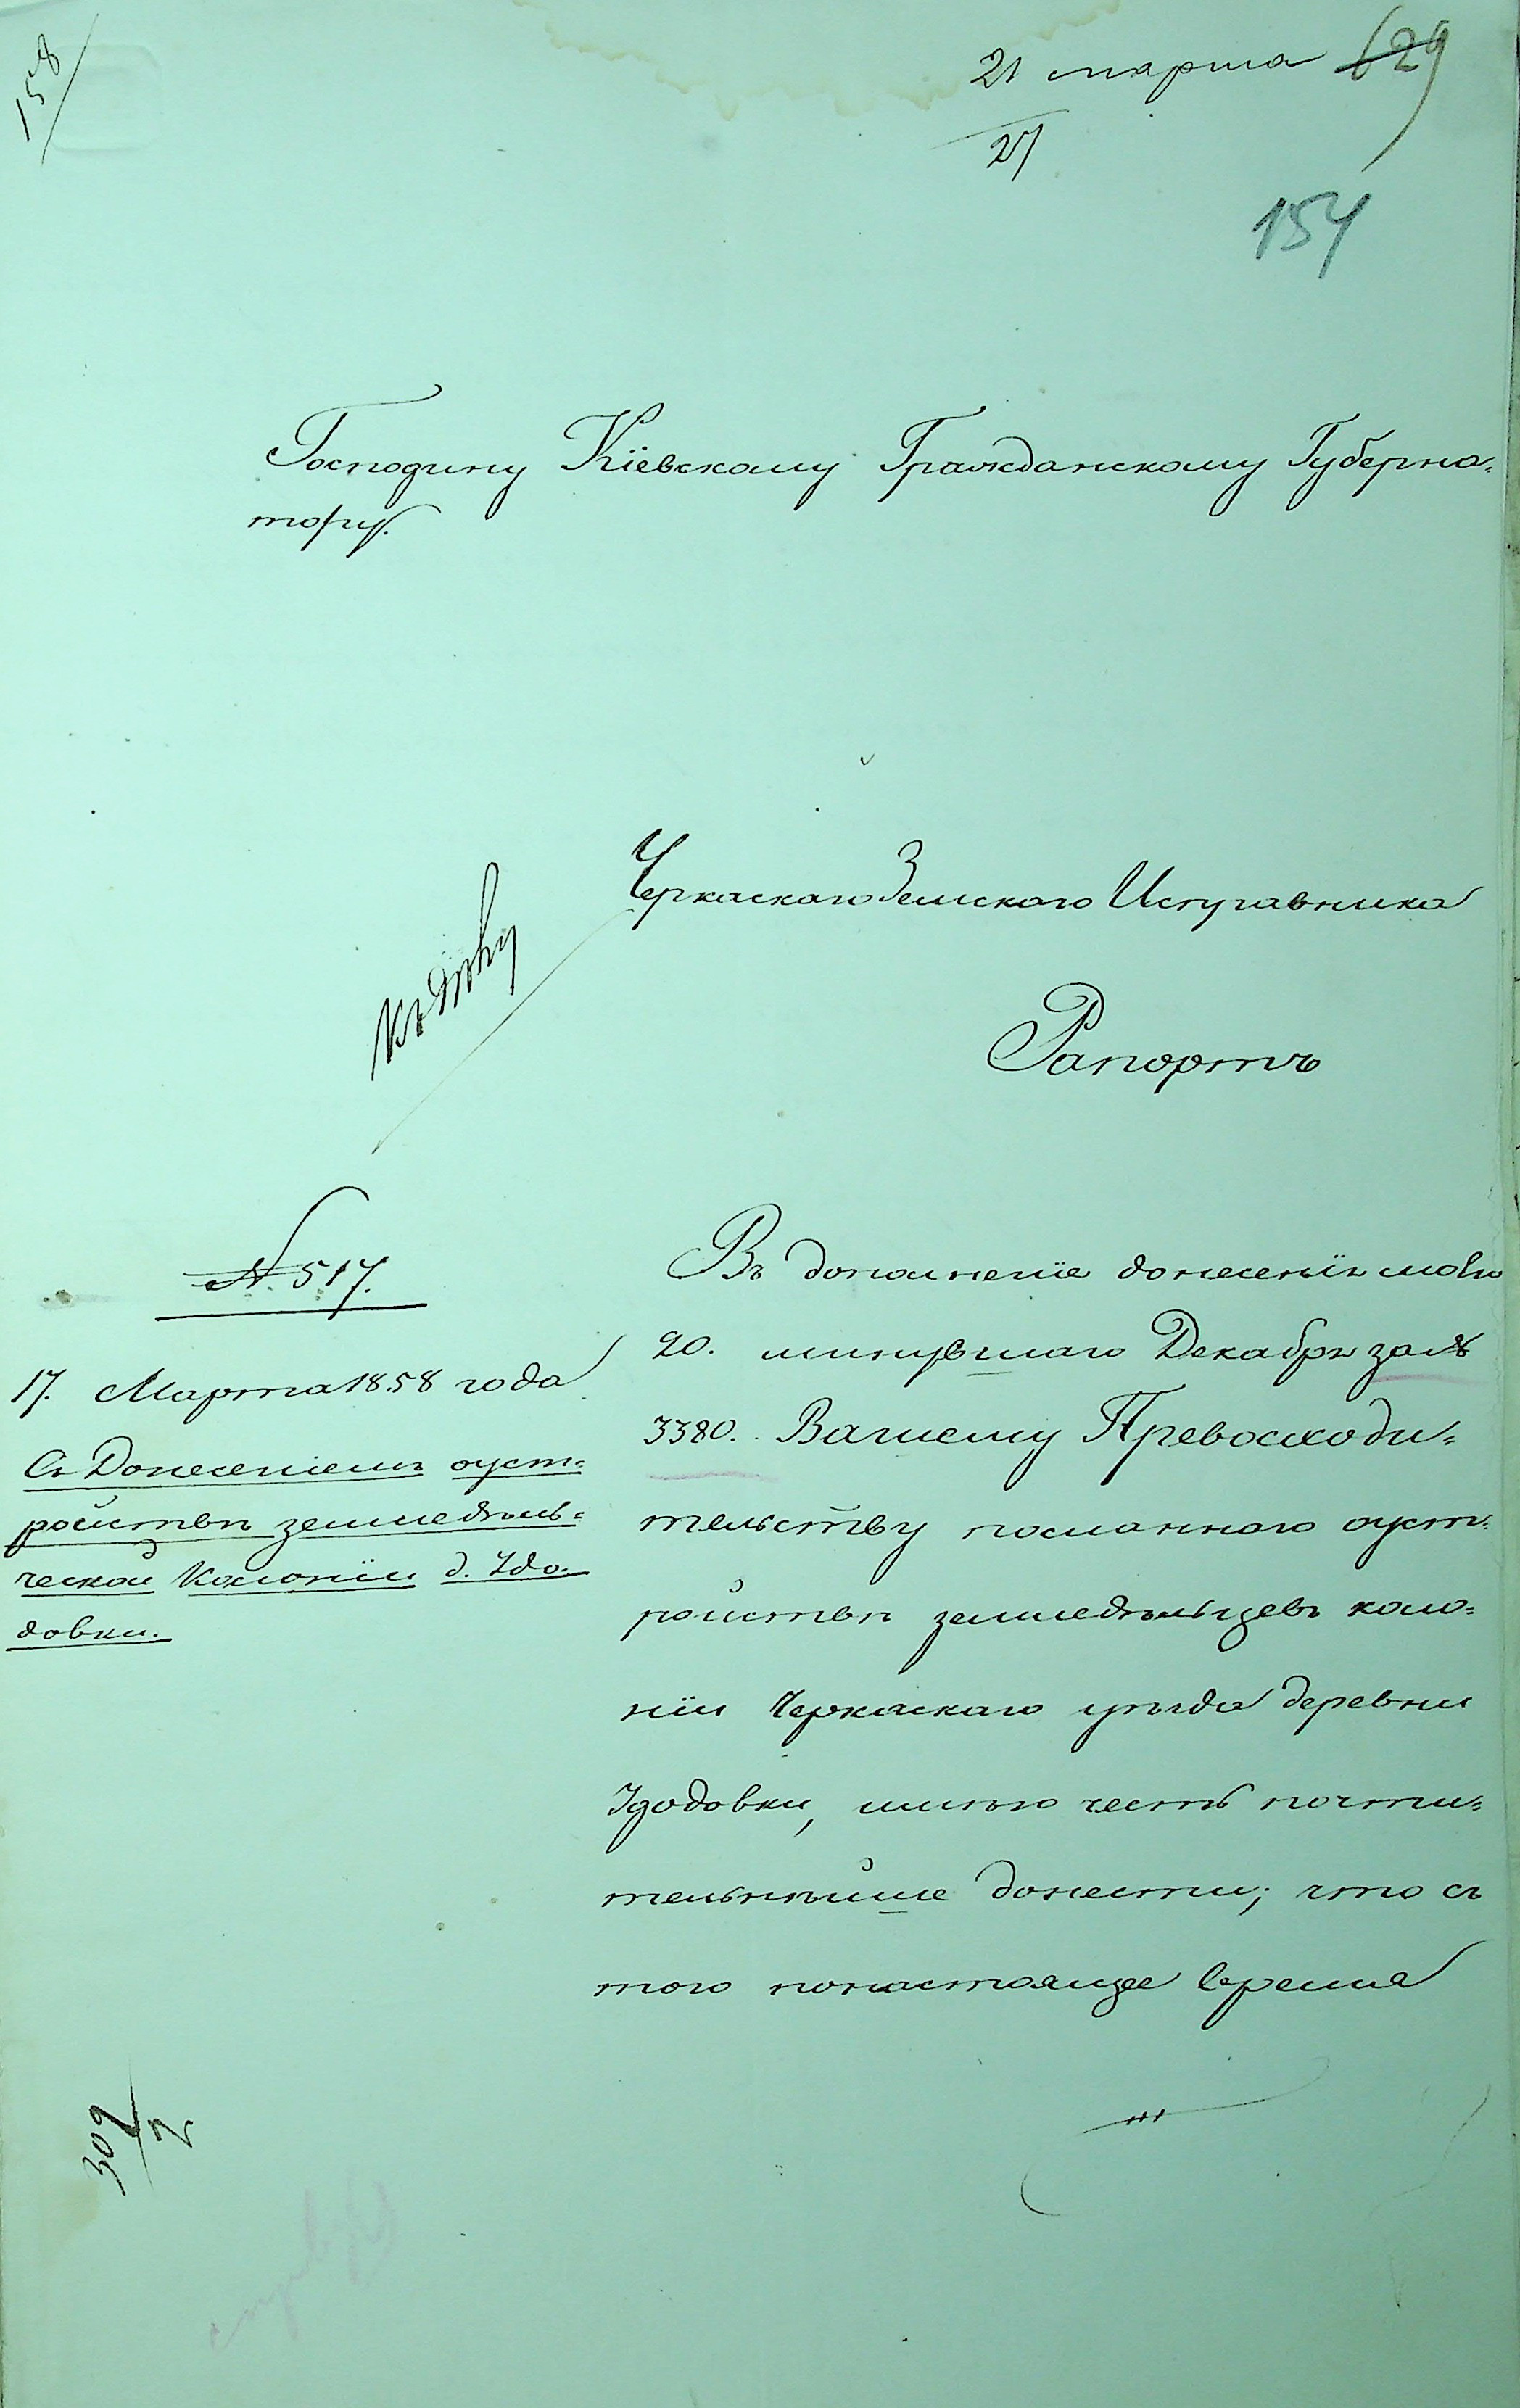 158
21 марта 629
27
154
Господину Кіевскому Гражданскому Губерна=
тору.
Черкаскаго Земскаго Исправника
Къ дѣлу
Рапортъ
№ 517.
17. Марта 1858 года
Съ Донесеніемъ о уст=
ройствѣ земледѣль=
ческой Колоніи д.
довки.
Въ дополненіе донесенія моего
20. минувшаго Декабря за №
3380. Вашему Превосходи=
тельству посланнаго о уст=
ройствѣ земледѣльцевъ коло=
ніи Черкаскаго уѣзда деревни
имѣю честь почти=
тельнѣйше донести; что съ
того по настоящее время
309
2